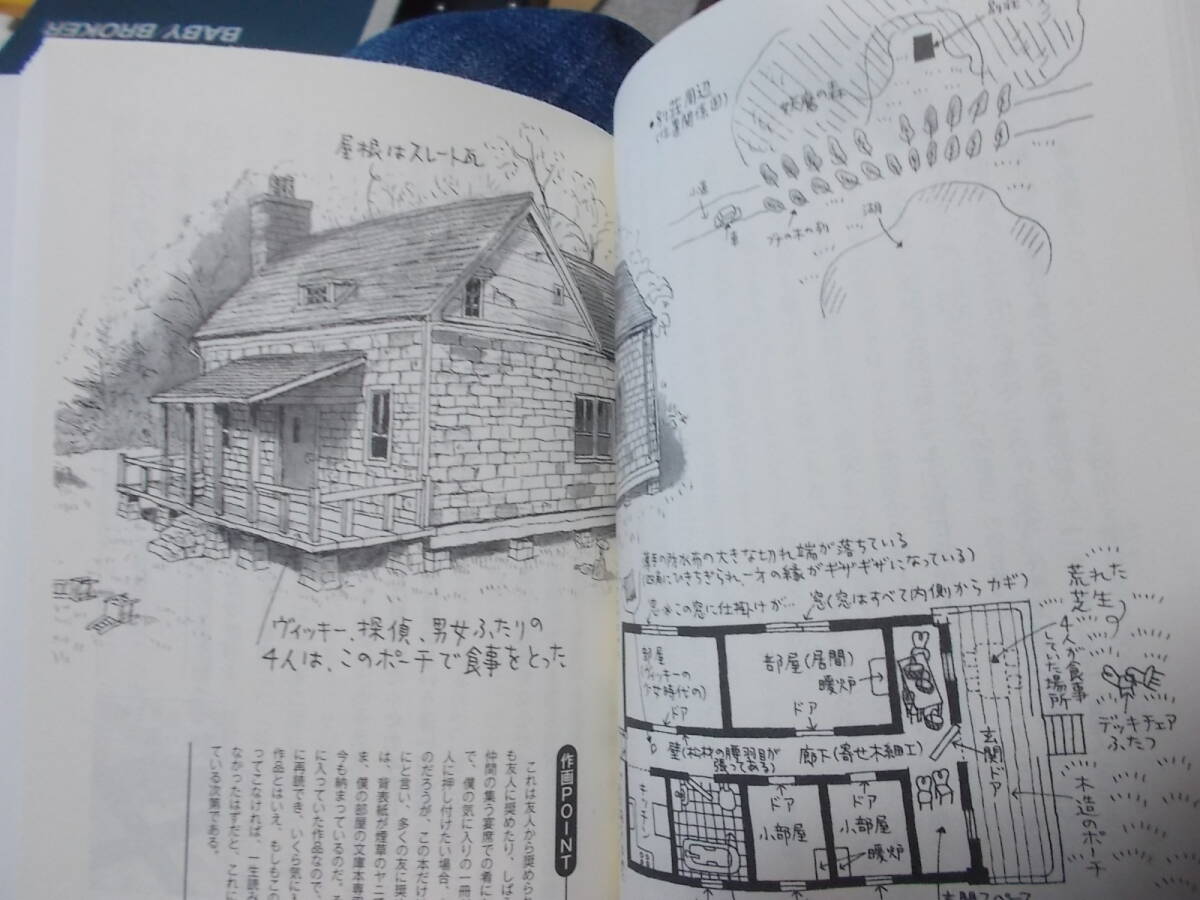 BABY BROKER
屋根はスレート瓦
ヴィッキー、探偵、男女ふたりの
4人は、このポーチで食事をとった
作画POINT
これは友人から奨められ
も友人に奨めたり、しば
仲間の集う宴席での肴に
で、僕の気に入りの一冊
人に押し付けたい場合、
のだろうが、この本だけ
にと言い、多くの友に奨
は、背表紙が煙草のヤニで
ま、僕の部屋の文庫本専
今も納まっているのだ。そ
に入っていた作品なので、
に再読でき、いくら気に
作品とはいえ、もしもこの
ってこなければ、一生読み
なかったはずだと、これに
ている次第である。
・別荘周辺
(位置関係図)
妖魔の森
小道
車
湖
薄手の防水布の大きな切れ端が落ちている
(四角にひきちぎられ一方の縁がギザギザになっている)
窓※この窓に仕掛けが…
窓(窓はすべて内側からカギ)
荒れた
芝生
4人が食事
していた場所
デッキチェア
ふたつ
部屋
(ヴィッキーの
少女時代の)
ドア
部屋(居間)
暖炉
ドア
壁(松材の腰羽目が
張ってある)
廊下(寄せ木細工)
玄関ドア
木造のポーチ
キッチン
ドア
小部屋
ドア
小部屋
暖炉